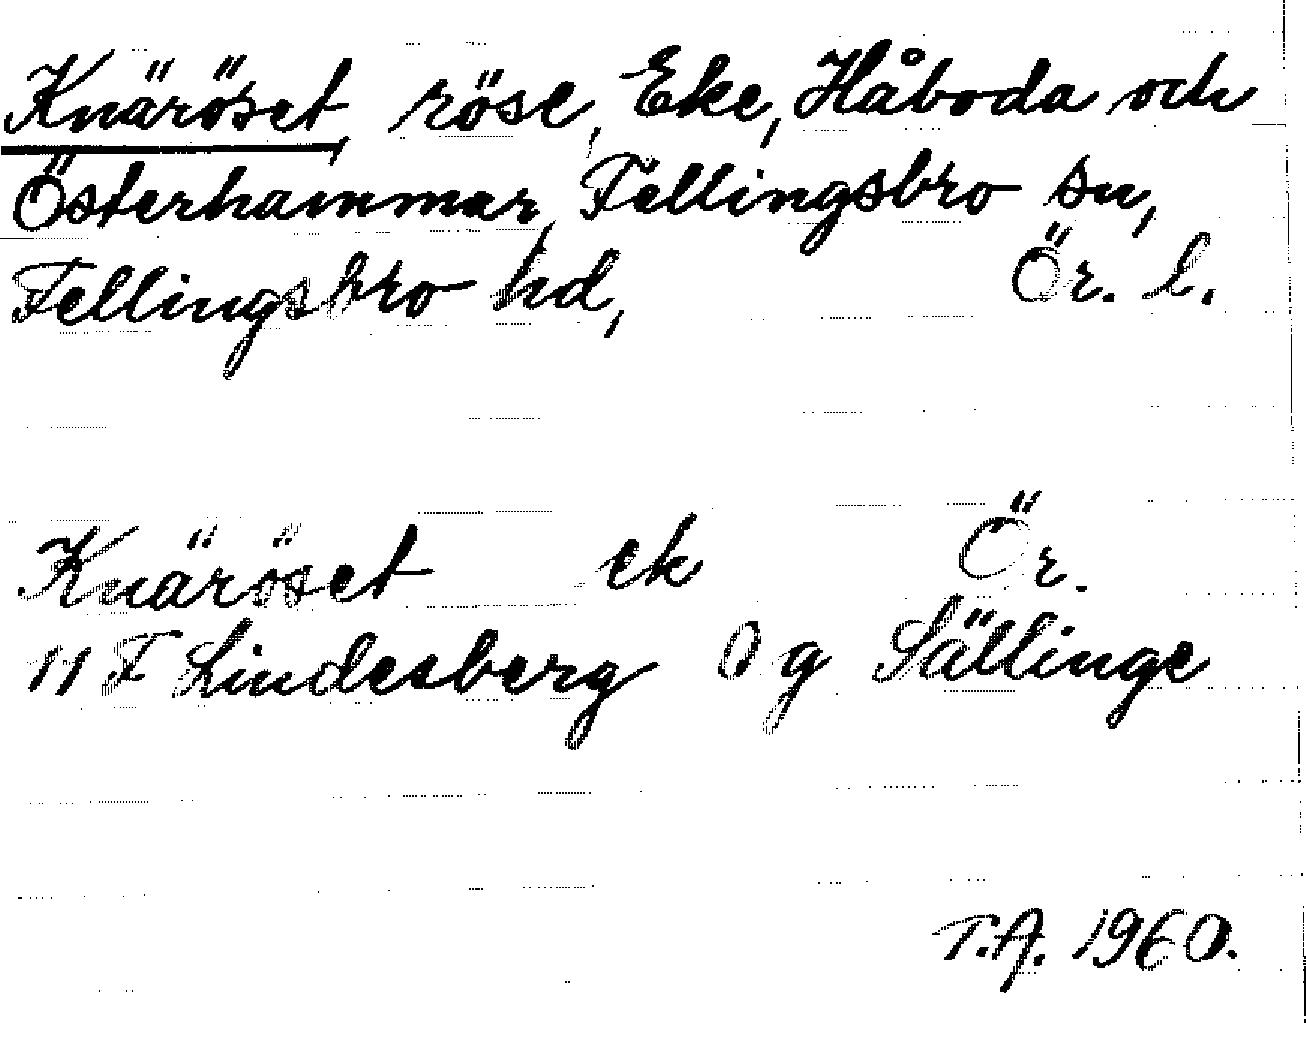 Knäröset, röse, Eke, Håboda och
Österhammar, Fellingsbro sn,
Fellingsbro hd, Ör. l.
Knäröset ek Ör.
11 F Lindesberg 0 g Sällinge
T.A. 1960.